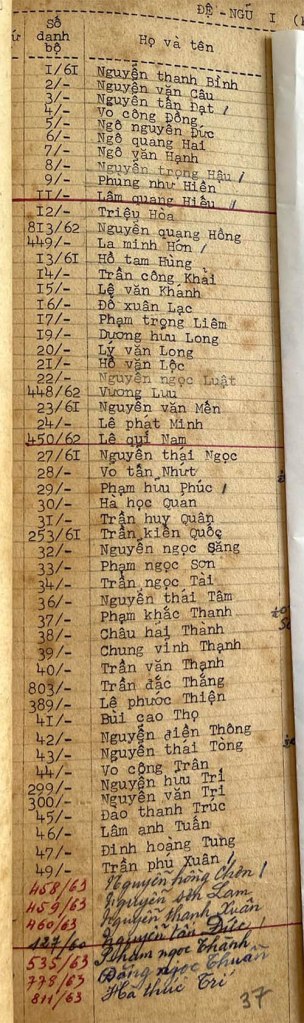 ĐỆ-NGŨ I
Số danh bộ Họ và tên
1/61 Nguyễn thanh Bình
2/- Nguyễn văn Câu
3/- Nguyễn tấn Đạt /
4/- Vo công Đông
5/- Ngô nguyên Đức
6/- Ngô quang Hai
7/- Ngô văn Hạnh
8/- Nguyễn trọng Hậu /
9/- Phùng như Hiền
11/- Lâm quang Hiếu /
12/- Triệu Hòa
813/62 Nguyễn quang Hồng
449/- La minh Hớn /
13/61 Hồ tam Hùng
14/- Trần công Khải
15/- Lê văn Khánh
16/- Đỗ xuân Lạc
17/- Phạm trọng Liêm
19/- Dương hưu Long
20/- Lý văn Long
21/- Hồ văn Lộc
22/- Nguyễn ngọc Luật
448/62 Vương Lưu
23/61 Nguyễn văn Mến
24/- Lê phat Minh
450/62 Lê quí Nam
27/61 Nguyễn thái Ngọc
28/- Vo tấn Nhứt
29/- Phạm hữu Phúc /
30/- Ha học Quan
31/- Trần huy Quân
253/61 Trần kiến Quốc
32/- Nguyễn ngọc Săng
33/- Phạm ngọc Sơn
34/- Trần ngọc Tài
36/- Nguyễn thái Tâm
37/- Phạm khắc Thanh
38/- Châu hai Thành
39/- Chung vinh Thạnh
40/- Trần văn Thạnh
803/- Trần đắc Thắng
389/- Lê phước Thiện
41/- Bùi cao Thọ
42/- Nguyễn điền Thông
43/- Nguyễn thái Tòng
44/- Vo công Trân
299/- Nguyễn hữu Trí
300/- Nguyễn văn Trí
45/- Đao thanh Trúc
46/- Lâm anh Tuấn
47/- Đinh hoàng Tung
49/- Trần phú Xuân /
458/63 Nguyễn hồng Chên /
459/63 Nguyễn sơn Lam
460/63 Nguyễn thanh Xuân
127/60 Nguyễn tấn Đức
535/63 Phạm ngọc Thành
778/63 Đặng ngọc Thuần
811/63 Hà thúc Trí
37